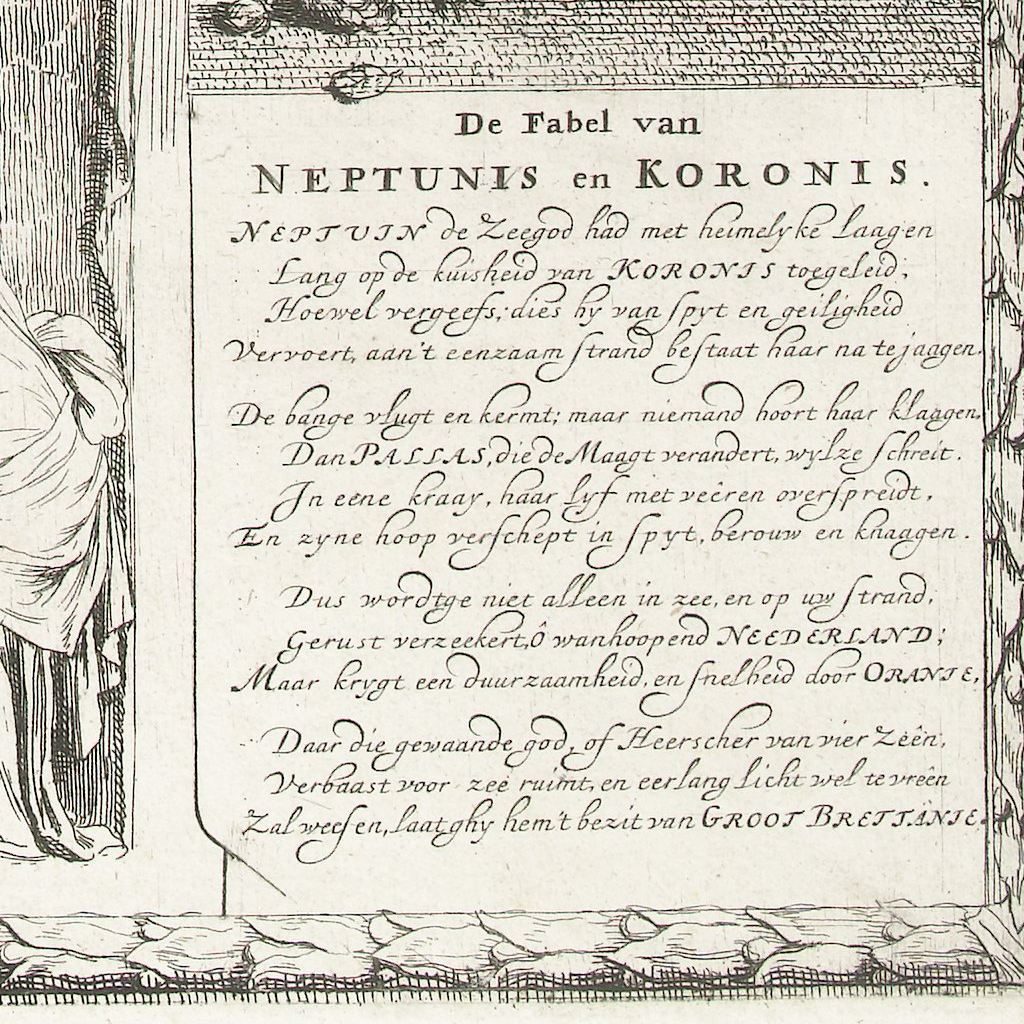 De Fabel van
NEPTUNIS en KORONIS.
NEPTUIN de Zeegod had met heimelyke laagen
Lang op de kuisheid van KORONIS toegeleid;
Hoewel vergeefs; dies hy van spyt en geiligheid
Vervoert, aan't eenzaam strand bestaat haar na te jaagen.
De bange vlugt en kermt; maar niemand hoort haar klaagen,
Dan PALLAS, die de Maagt verandert, wylze schreit.
In eene kraay, haar lyf met veêren overspreidt,
En zyne hoop verschept in spyt, berouw en knaagen.
Dus wordtge niet alleen in zee, en op uw strand,
Gerust verzeekert, Ô wanhoopend NEEDERLAND;
Maar krygt een duurzaamheid, en snelheid door ORANJE,
Daar die gewaande god, of Heerscher van vier Zeên,
Verbaast voor zee ruimt, en eerlang licht wel te vreên
Zal weesen, laat ghy hem't bezit van GROOT BRETTANJE.